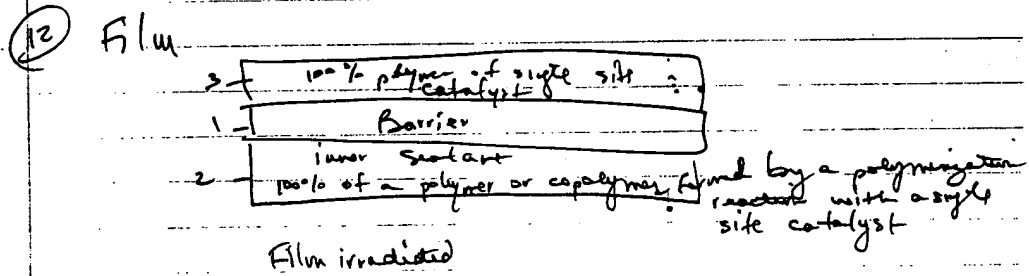 12 Film
3 100% polymer of single site
catalyst
1 Barrier
inner sealant
2 100% of a polymer or copolymer formed by a polymerization
reaction with a single
site catalyst
Film irradiated